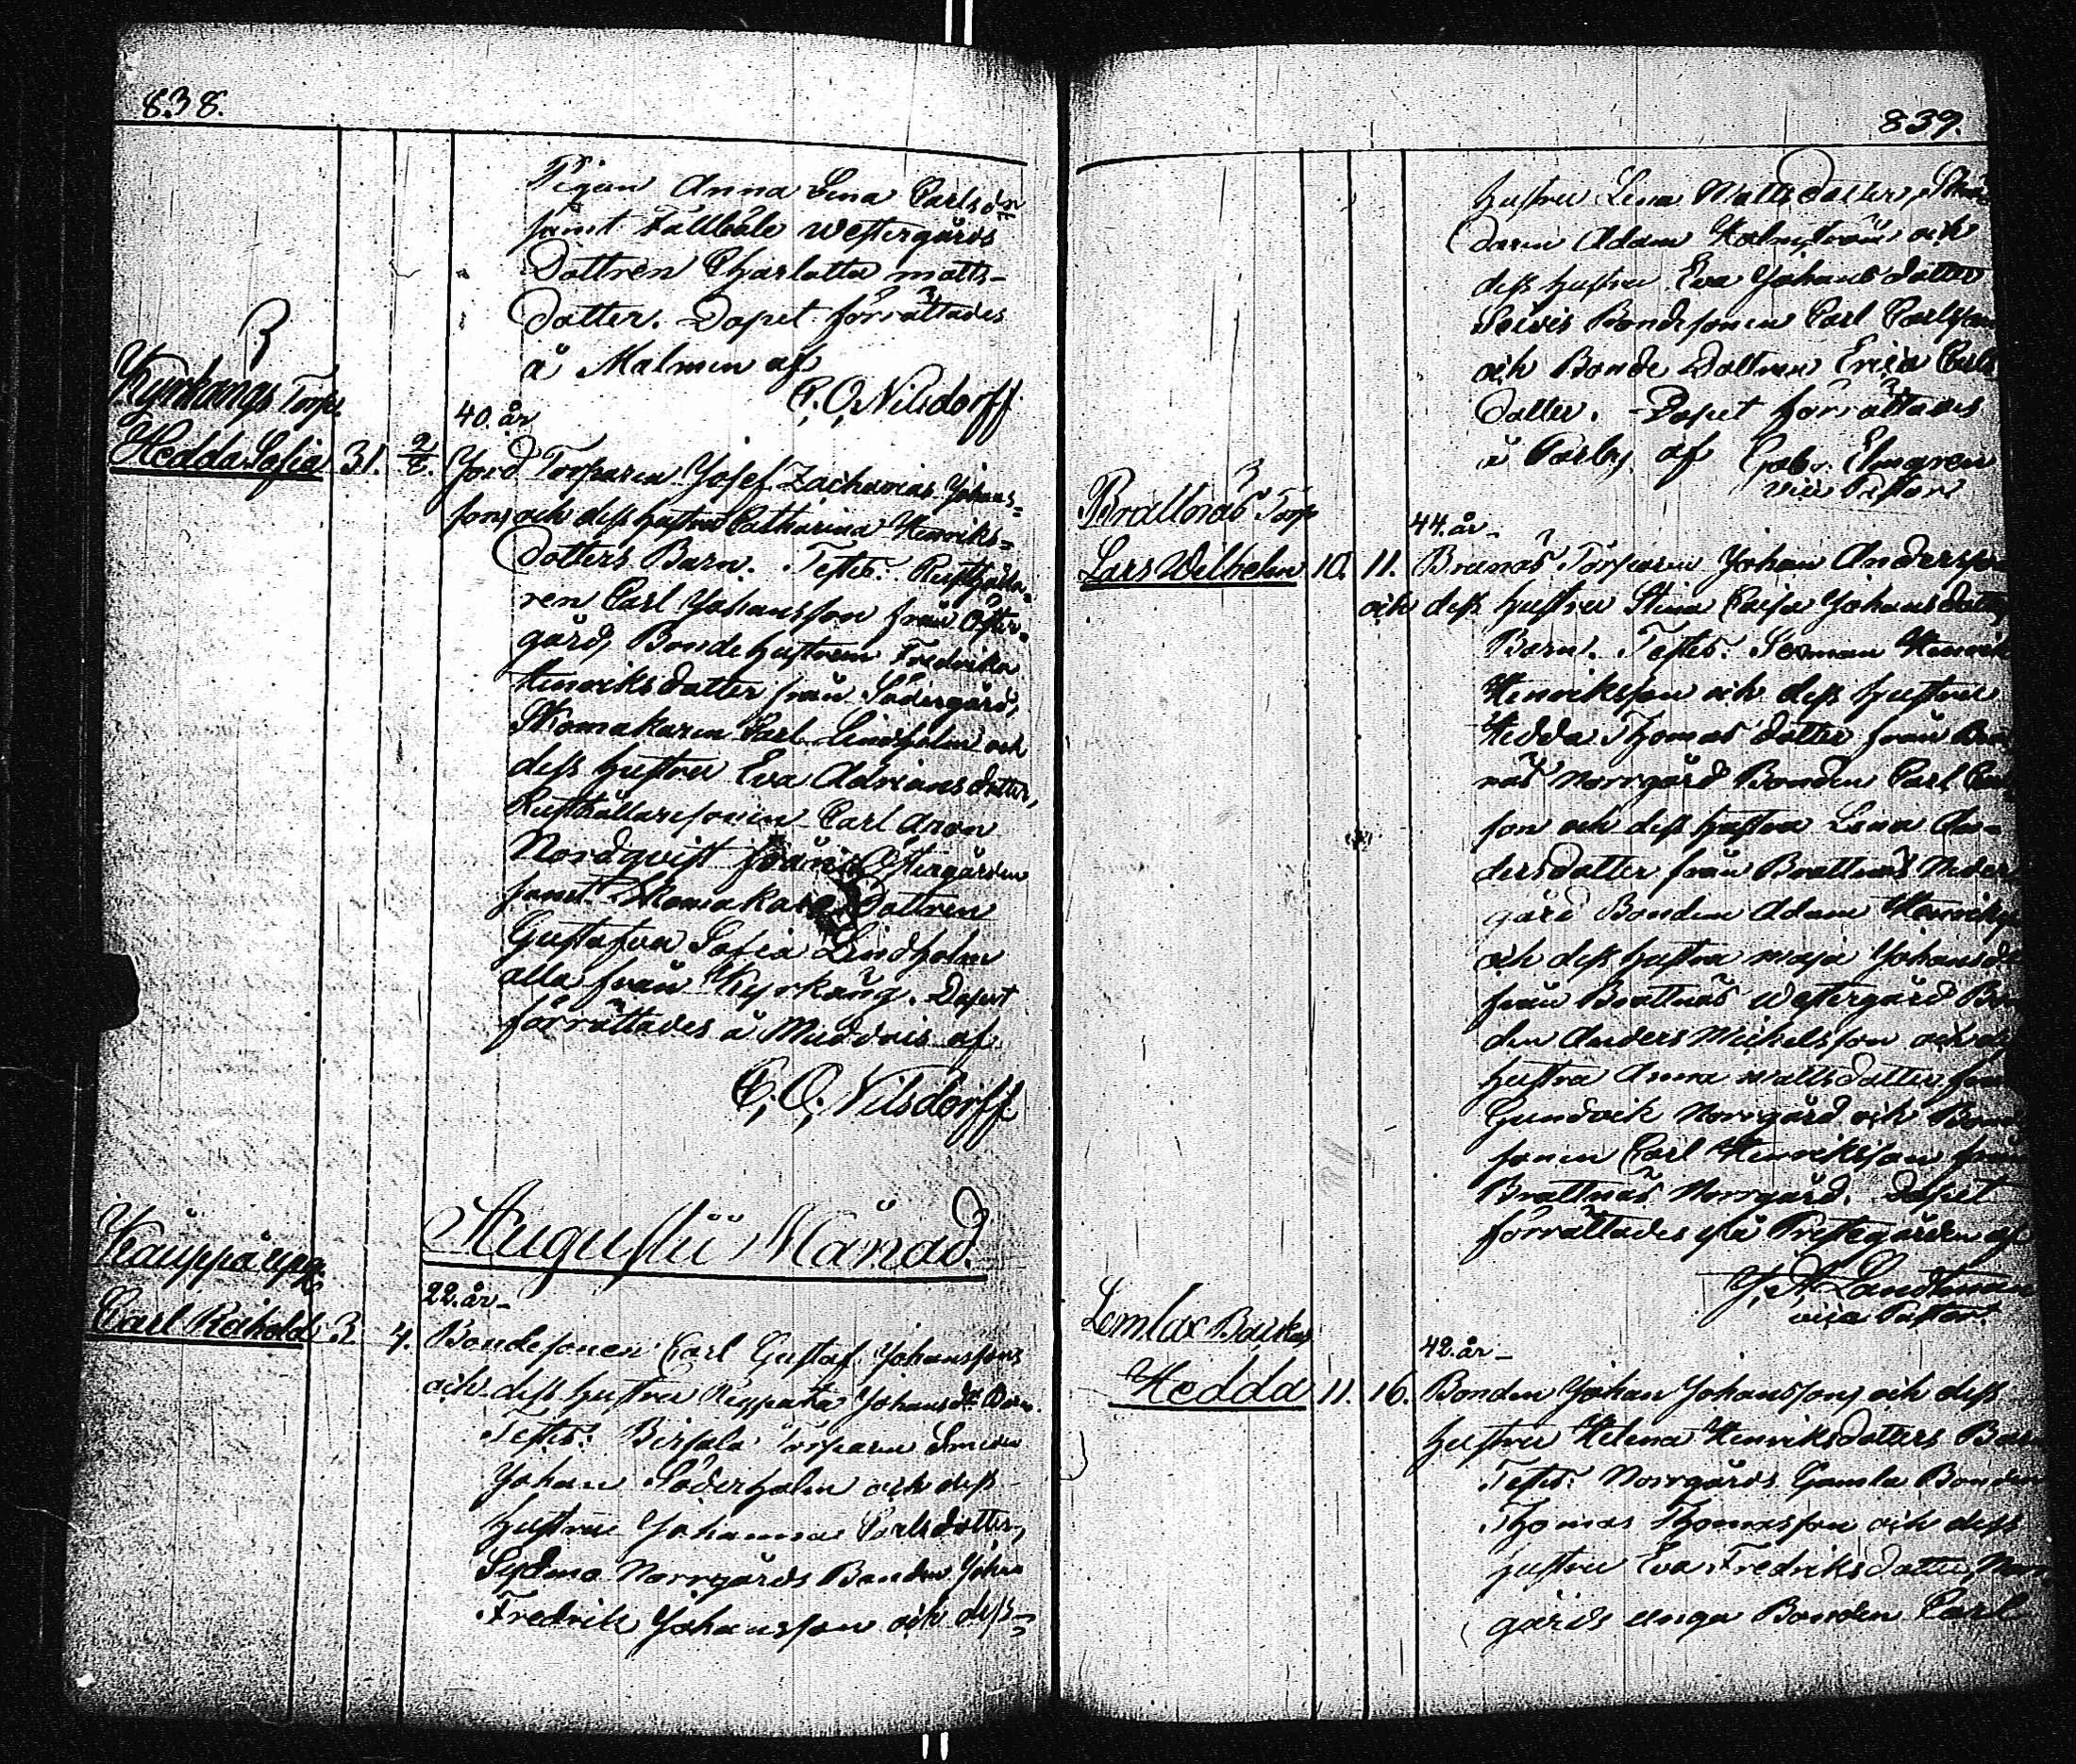 838.
Pigan Anna Lena Carlsdr
samt Fallböle Westergårds
Dottren Charlotta Matts-
dotter. Dopet förrättades
å Malmen af
C. O. Nilsdorff
Kyrkängs Torp.
40. år
Hedda Sofia 31. 2/8. Jord Torparen Josef Zacharias Johans-
sons och dess hustrus Catharina Henriks-
dotters Barn. Testes: Rusthålla-
ren Carl Johansson från Öster-
gård, Bondehustrun Fredrika
Henriksdotter från Södergård,
Skomakaren Carl Lindholm och
dess hustru Eva Adriansdotter,
Rusthållaresonen Carl Aron
Nordqvist från Östergården
samt Skomakare Dottren
Gustafva Sofia Lindholm
alla från Kyrkäng. Dopet
förrättades å Muddais af
C. O. Nilsdorff
Augustii Månad.
22. år
Carl 3 4. Bondesonen Carl Gustaf Johanssons
och dess hustru Johansdr Barn.
Testes: Torparen Smeden
Johan Söderholm och dess
hustru Johanna Carlsdotter,
Sydmo Norrgårds Bonden Johan
Fredrik Johansson och dess
839.
hustru Lena Mattsdotter,
Adam Holmström och
dess hustru Eva Johansdotter
Bondesonen Carl Carlsson
och Bonde Dottren Erica Carls
dotter. Dopet förrättades
å Parby af Gabr. Elmgren
vice Pastor
Brattnäs Torp
44. år
Lars Wilhelm 10. 11. Torparen Johan Andersson
och dess hustru Stina Caisa Johansdotters
Barn. Testes: Henrik
Henriksson och dess hustru
Hedda Thomasdotter från
näs Norrgård Bonden Carl
son och dess hustru Lena An-
dersdotter från Brattnäs Neder
gård Bonden Adam Henriksson
och dess hustru Maja Johansdr
från Brattnäs Westergård Bon
den Anders Michelsson och dess
hustru Anna Mattsdotter från
Gundvik Norrgård och Bonde
sonen Carl Henriksson från
Brattnäs Norrgård. Dopet
förrättades på Prestegården af
J. A. Zandtman
vice Pastor.
Lemlax Backas
42. år
Hedda 11. 16. Bonden Johan Johanssons och dess
hustru Helena Henriksdotters Barn
Testes: Norrgårds Gamla Bonden
Thomas Thomasson och dess
hustru Eva Fredriksdotter, Norr
gårds unga Bonden Carl